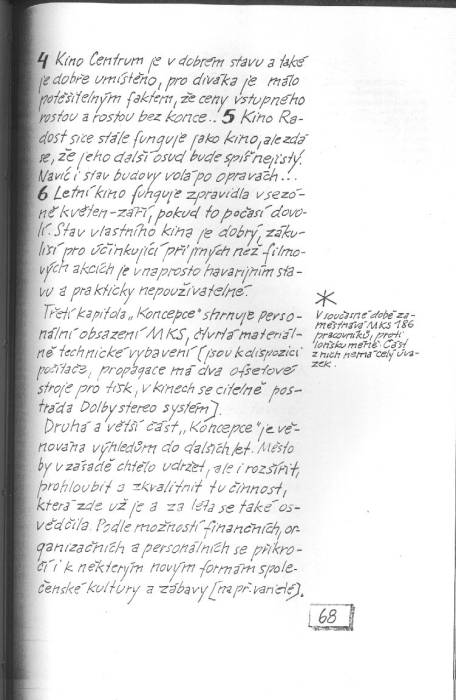 4 Kino Centrum je v dobrém stavu a také
je dobře umístěno, pro diváka je málo
potěšitelným faktem, že ceny vstupného
rostou a rostou bez konce... 5 Kino Ra-
dost sice stále funguje jako kino, ale zdá
se, že jeho další osud bude spíš nejistý.
Navíc i stav budovy volá po opravách...
6 Letní kino funguje zpravidla v sezó-
ně květen-září, pokud to počasí dovo-
lí. Stav vlastního kina je dobrý, záku-
lisí pro účinkující při jiných než filmo-
vých akcích je v naprosto havarijním sta-
vu a prakticky nepoužívatelné.
Třetí kapitola „Koncepce" shrnuje perso-
nální obsazení MKS, čtvrtá materiál-
ně technické vybavení (jsou k dispozici
počítače, propagace má dva ofsetové
stroje pro tisk, v kinech se citelně pos-
trádá Dolby stereo systém).
Druhá a větší část „Koncepce" je vě-
nována výhledům do dalších let. Město
by v zásadě chtělo udržet, ale i rozšířit,
prohloubit a zkvalitnit tu činnost,
která zde už je a za léta se také os-
vědčila. Podle možností finančních, or-
ganizačních a personálních se přikro-
čí i k některým novým formám spole-
čenské kultury a zábavy (např. varieté).
*
V současné době za-
městnává MKS 186
pracovníků, proti
loňsku méně. Část
z nich nemá celý úva-
zek.
68